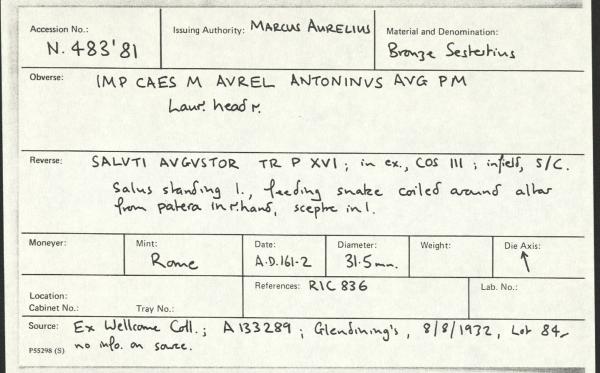 Accession No.: N. 483'81
Issuing Authority: MARCUS AURELIUS
Material and Denomination: Bronze Sestertius
Obverse: IMP CAES M AVREL ANTONINVS AVG PM
Laur. head r.
Reverse: SALVTI AVGVSTOR TR P XVI; in ex., COS III; in field, S/C.
Salus standing l., feeding snake coiled around altar
from patera in r. hand, sceptre in l.
Moneyer:
Mint: Rome
Date: A.D. 161-2
Diameter: 31.5 mm.
Weight:
Die Axis: ↑
Location:
Cabinet No.: Tray No.:
References: RIC 836
Lab. No.:
Source: Ex Wellcome Coll.; A133289; Glendining's, 8/8/1932, Lot 84,
no info. on source.
P55298 (S)